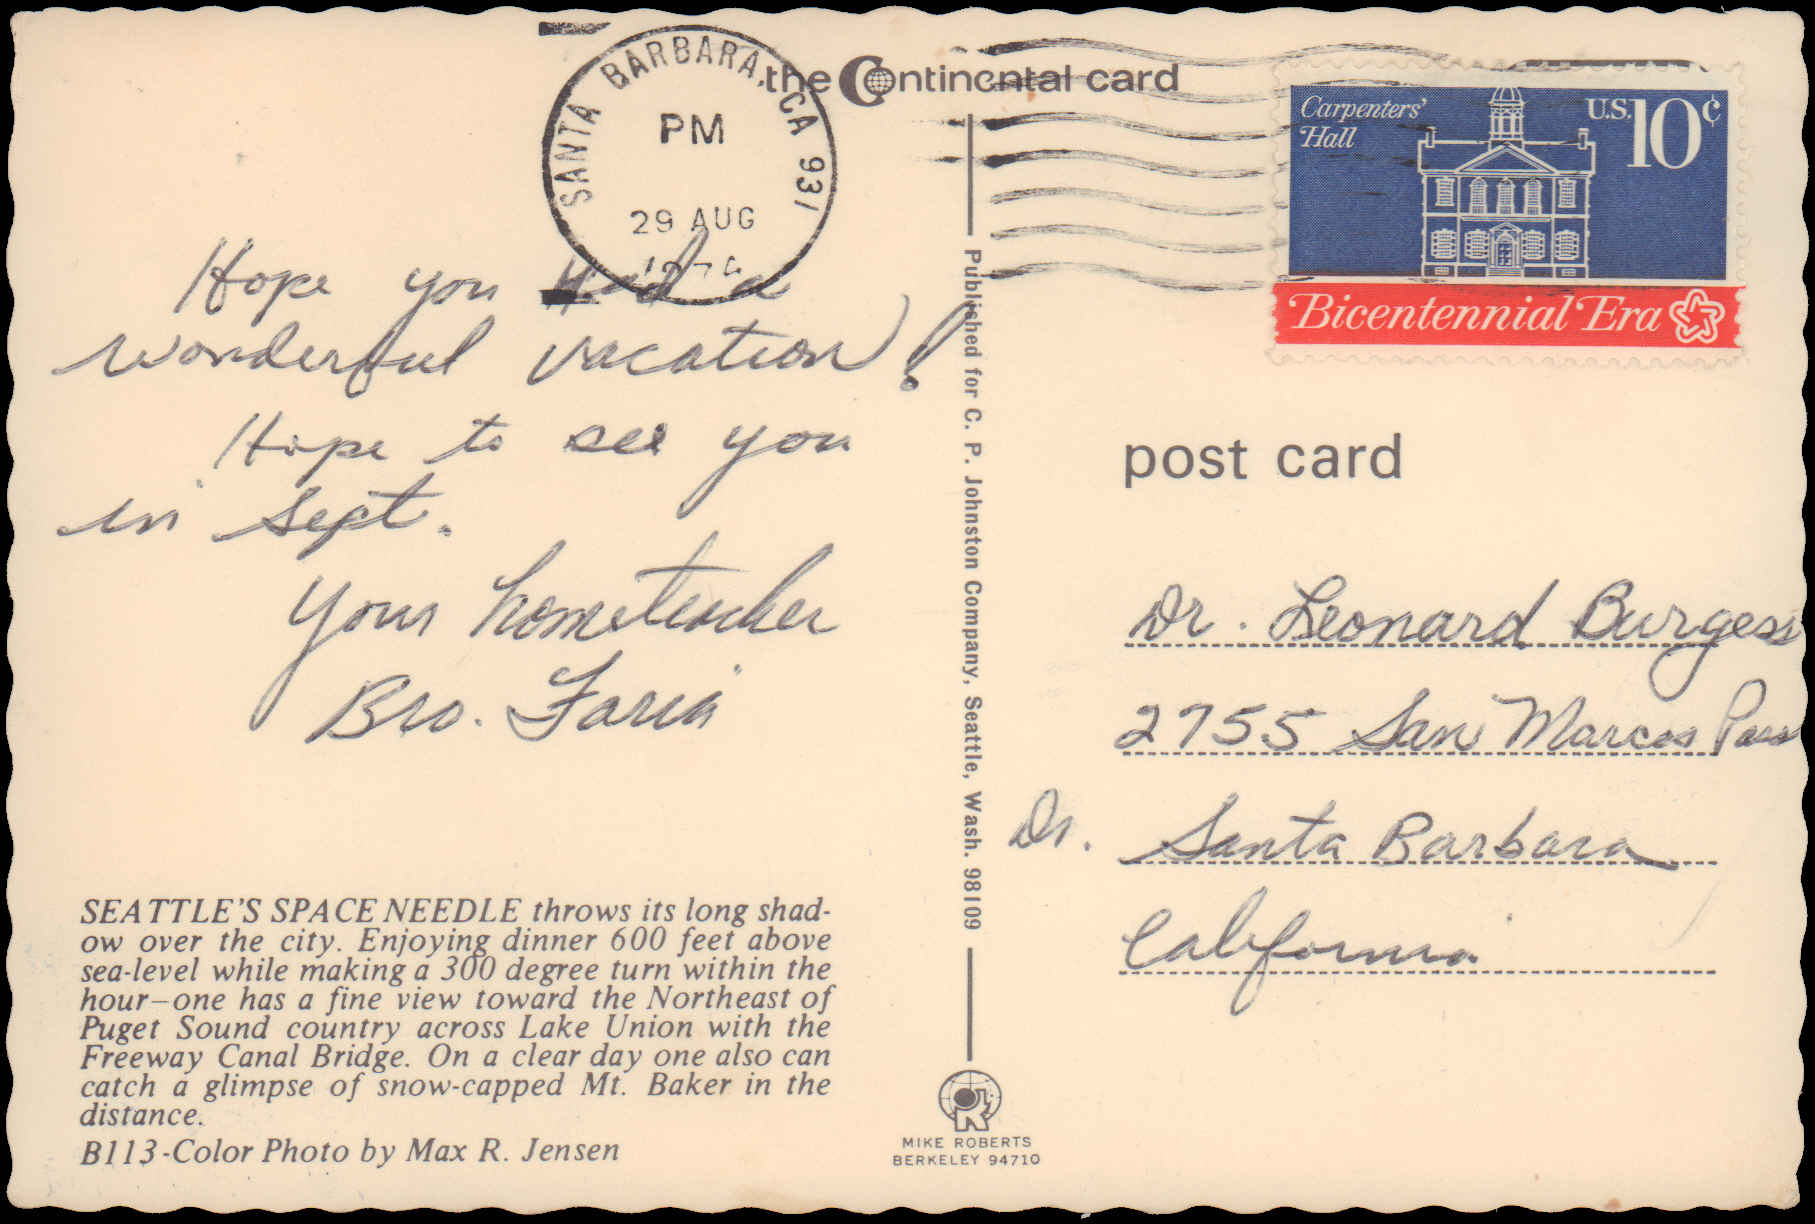 the Continental card
SANTA BARBARA, CA 931
PM
29 AUG
Carpenters'
Hall
U.S. 10¢
Bicentennial Era
Hope you had a
wonderful vacation!
Hope to see you
in Sept.
Your hometeacher
Bro. Faria
SEATTLE'S SPACE NEEDLE throws its long shad-
ow over the city. Enjoying dinner 600 feet above
sea-level while making a 300 degree turn within the
hour—one has a fine view toward the Northeast of
Puget Sound country across Lake Union with the
Freeway Canal Bridge. On a clear day one also can
catch a glimpse of snow-capped Mt. Baker in the
distance.
B113-Color Photo by Max R. Jensen
Published for C. P. Johnston Company, Seattle, Wash. 98109
MIKE ROBERTS
BERKELEY 94710
post card
Dr. Leonard Burgess
2755 San Marcos Pass
Dr. Santa Barbara
California